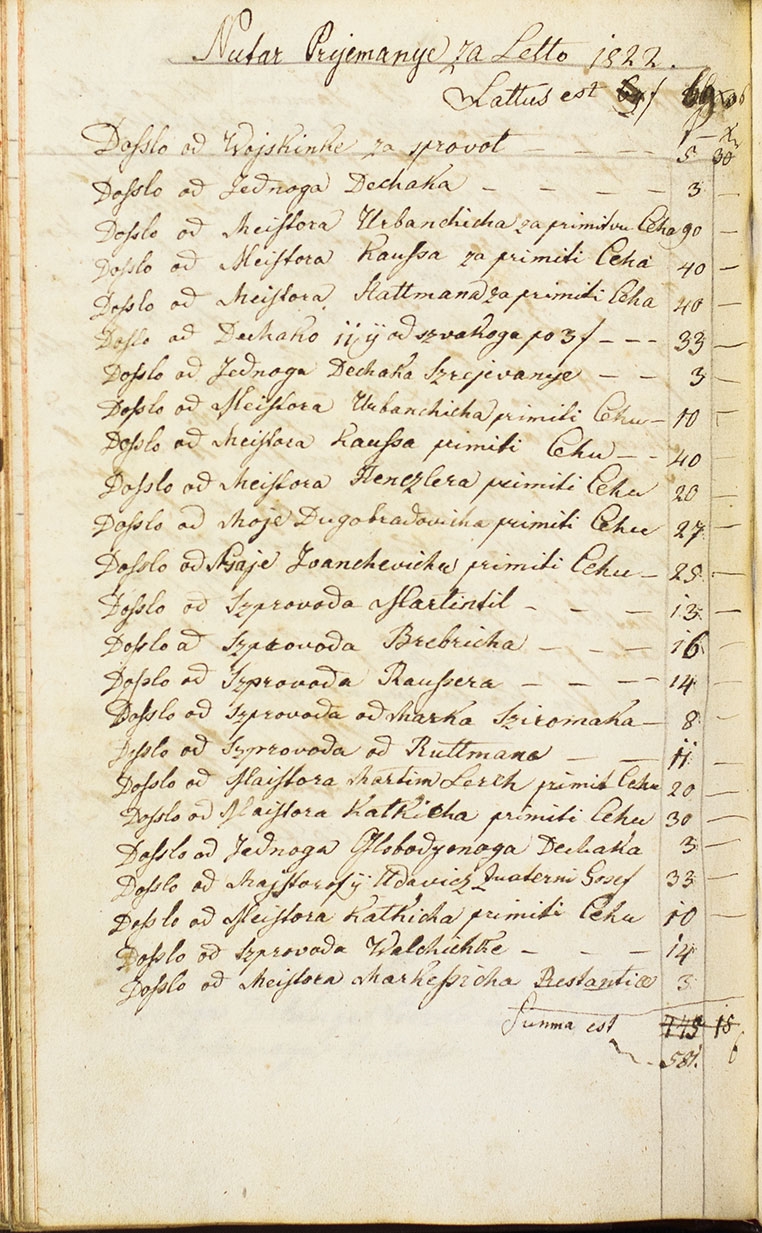 Nutar Prijemanye za Letto 1822.
Lattus est 69
f — x
Dosslo od Wojskinke za sprovot — — — — 5 30
Dosslo od Jednoga Dechaka — — — — — 3 —
Dosslo od Meistora Urbanchicha za primitvu Ceha 90 —
Dosslo od Meistora Kaussa za primiti Ceha 40 —
Dosslo od Meistora Stattmana za primiti Ceha 40 —
Doslo od Dechako ii ij od szvakoga po 3 f — — — 33 —
Dosslo od Jednoga Dechaka — — 3 —
Dosslo od Meistora Urbanchicha primiti Cehu — 10 —
Dosslo od Meistora Kaussa primiti Cehu — — 40 —
Dosslo od Meistora Henczlera primiti Cehu 20 —
Dosslo od Moje Dugobradovicha primiti Cehu 27 —
Dosslo od Joanchevicha primiti Cehu — 25 —
Dosslo od Szprovoda Martintil — — — 13 —
Dosslo od Szprovoda Brebricha — — — 16 —
Dosslo od Szprovoda Raussera — — — 14 —
Dosslo od Szprovoda od Marka Sziromaka — 8 —
Dosslo od Szprovoda od Ruttmana — — 11 —
Dosslo od Maistora Martim Lerch primit Cehu 20 —
Dosslo od Maistora Katkicha primiti Cehu 30 —
Dosslo od Jednoga Szlobodyenoga Dechaka 3 —
Dosslo od Quaterni 33 —
Dosslo od Meistora Katkicha primiti Cehu 10 —
Dosslo od Szprovoda Walchichke — — — 14
Dosslo od Meistora Markessicha Restantie 3
Summa est 745 15
581. 6